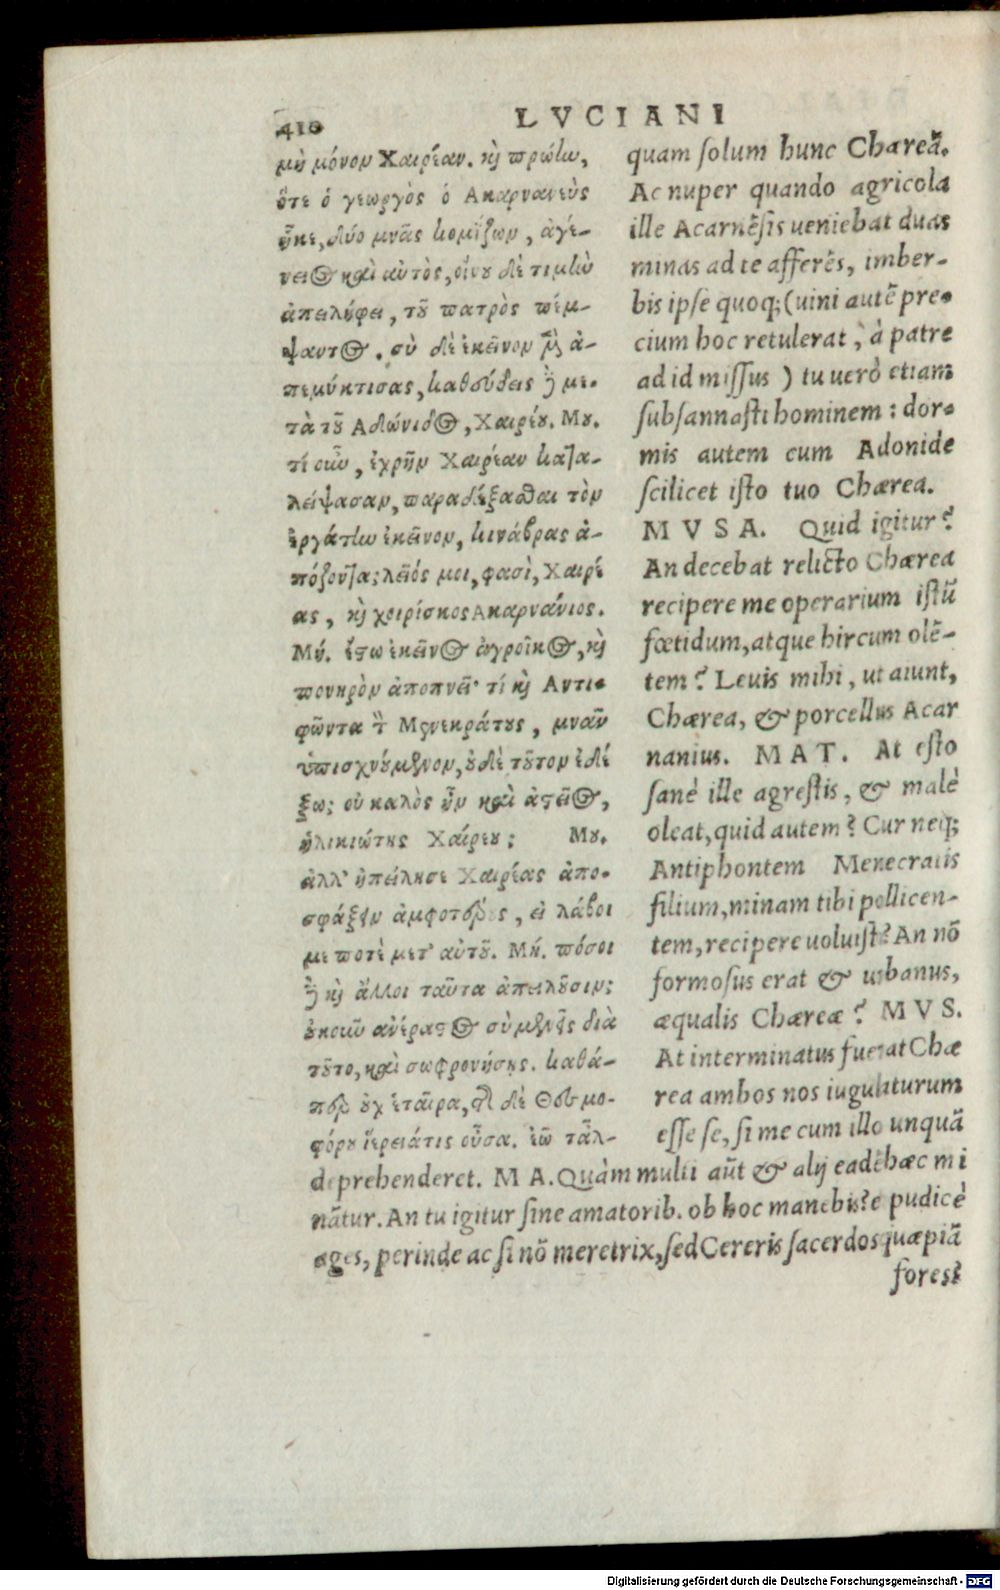 410
LVCIANI
μὴ μόνον Χαιρέαν. καὶ πρώην,
ὅτε ὁ γεωργὸς ὁ Ακαρνανεὺς
ἧκε, δύο μνᾶς κομίζων, ἀγέ-
νειος καὶ αὐτὸς, οἴνου δὲ τιμὴν
ἀπειλήφει, τοῦ πατρὸς πέμ-
ψαντος. σὺ δὲ ἐκεῖνον μὲν ἀ-
πεμύκτισας, καθεύδεις δὲ με-
τὰ τοῦ Αδώνιδος, Χαιρέου. Μου.
τί οὖν, ἐχρῆν Χαιρέαν κατα-
λείψασαν, παραδέξασθαι τὸν
ἐργάτην ἐκεῖνον, κινάβρας ἀ-
πόζοντα; λεῖός μοι, φασὶ, Χαιρέ
ας, καὶ χοιρίσκος Ακαρνάνιος.
Μή. ἔστω ἐκεῖνος ἀγροῖκος, καὶ
πονηρὸν ἀποπνεῖ· τί καὶ Αντι-
φῶντα τὸν Μενεκράτους, μνᾶν
ὑπισχνούμενον, οὐδὲ τοῦτον ἐδέ
ξω; οὐ καλὸς ἦν καὶ ἀστεῖος,
ἡλικιώτης Χαίρεου; Μου.
ἀλλ' ἠπείλησε Χαιρέας ἀπο-
σφάξειν ἀμφοτέρους, εἰ λάβοι
με ποτὲ μετ' αὐτοῦ. Μή. πόσοι
δὲ καὶ ἄλλοι ταῦτα ἀπειλοῦσιν;
ἐκοῦν ἀνέραστος σὺ μενεῖς διὰ
τοῦτο, καὶ σωφρονήσης. καθά-
περ οὐχ ἑταῖρα, τῆς δὲ Θεσμο-
φόρου ἱερειάτις οὖσα. ἐῶ τἆλ-
quam solum hunc Chæreã.
Ac nuper quando agricola
ille Acarnẽsis ueniebat duas
minas ad te afferẽs, imber-
bis ipse quoq; (uini autẽ pre-
cium hoc retulerat, à patre
ad id missus ) tu uerò etiam
subsannasti hominem : dor-
mis autem cum Adonide
scilicet isto tuo Chærea.
M V S A. Quid igitur?
An decebat relicto Chærea
recipere me operarium istũ
fœtidum, atque hircum olẽ-
tem? Leuis mihi, ut aiunt,
Chærea, & porcellus Acar
nanius. M A T. At esto
sanè ille agrestis, & malè
oleat, quid autem? Cur neq;
Antiphontem Menecratis
filium, minam tibi pollicen-
tem, recipere uoluist? An nõ
formosus erat & urbanus,
æqualis Chæreæ? M V S.
At interminatus fuerat Chæ
rea ambos nos iugulaturum
esse se, si me cum illo unquã
deprehenderet. M A. Quàm multi aũt & alij eadẽ hæc mi
nãtur. An tu igitur sine amatorib. ob hoc manebis? e pudicè
ages, perinde ac si nõ meretrix, sed Cereris sacerdos quæpiã
fores?
Digitalisierung gefördert durch die Deutsche Forschungsgemeinschaft - DFG